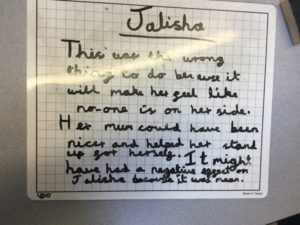 Jalisha
This was the wrong
thing to do because it
will make her feel like
no-one is on her side.
Her mum could have been
nicer and helped her stand
up for herself. It might
have had a negative effect on
Jalisha because it was mean.